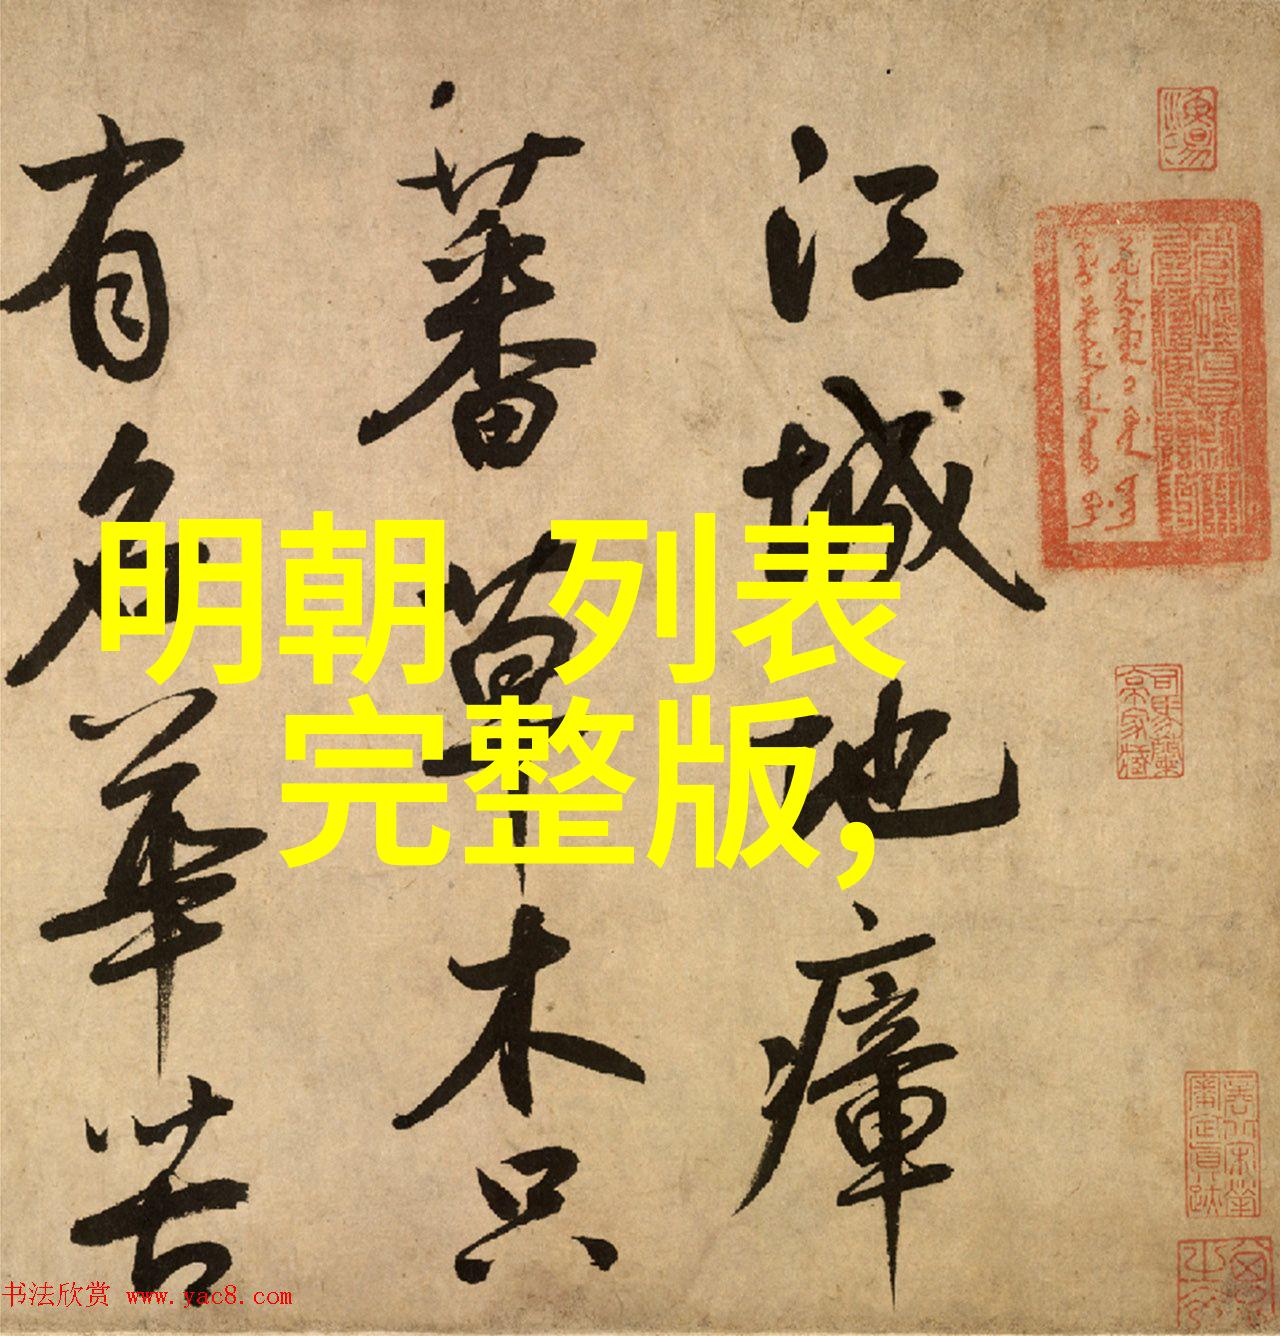 江城地瘴
蕃草木只
有名華苦
明朝 列表
完整版,
书法欣赏 www.yac8.com